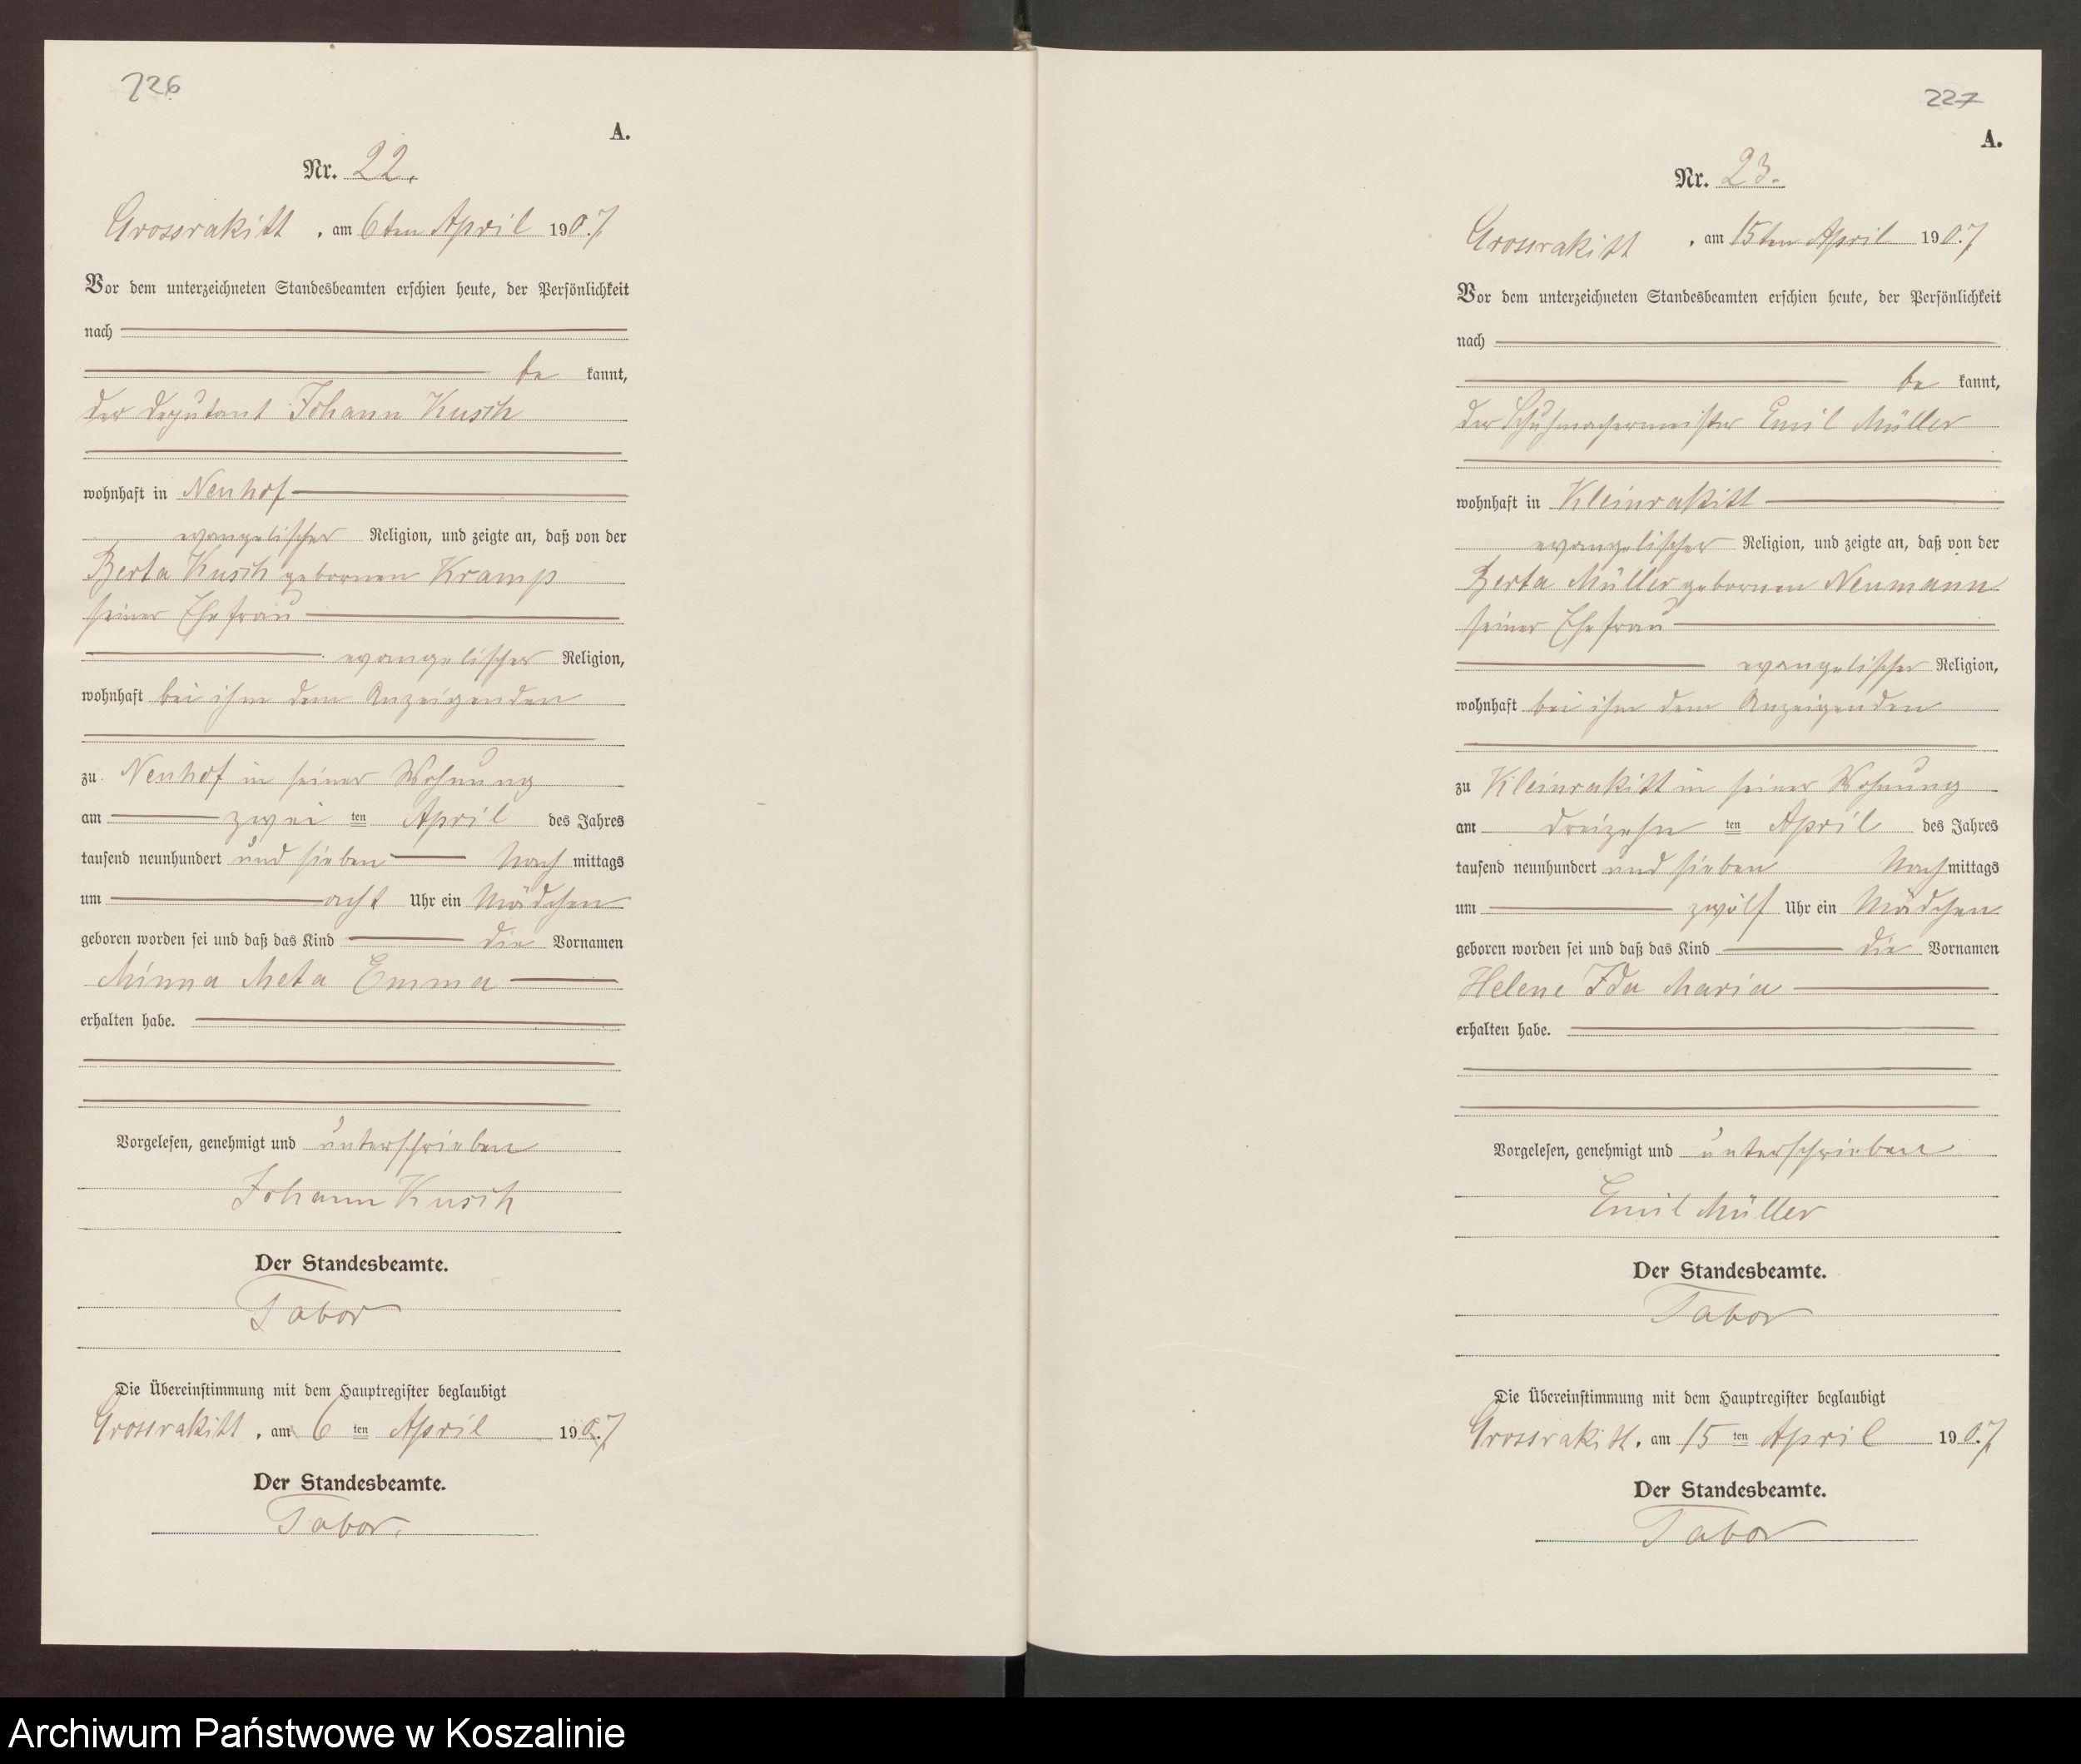 226
A.
Nr. 22.
Grossrakitt, am 6ten April 1907
Vor dem unterzeichneten Standesbeamten erschien heute, der Persönlichkeit
nach
be kannt,
der Deputant Johann Kusch
wohnhaft in Neuhof
evangelischer Religion, und zeigte an, daß von der
Berta Kusch gebornen Kramp
seiner Ehefrau
evangelischer Religion,
wohnhaft bei ihm dem Anzeigenden
zu Neuhof in seiner Wohnung
am zwei ten April des Jahres
tausend neunhundert und sieben Nach mittags
um acht Uhr ein Mädchen
geboren worden sei und daß das Kind die Vornamen
Minna Meta Emma
erhalten habe.
Vorgelesen, genehmigt und unterschrieben
Johann Kusch
Der Standesbeamte.
Tabor
Die Übereinstimmung mit dem Hauptregister beglaubigt
Grossrakitt, am 6 ten April 1907
Der Standesbeamte.
Tabor.
227
A.
Nr. 23.
Grossrakitt, am 15ten April 1907
Vor dem unterzeichneten Standesbeamten erschien heute, der Persönlichkeit
nach
be kannt,
der Schuhmachermeister Emil Müller
wohnhaft in Kleinrakitt
evangelischer Religion, und zeigte an, daß von der
Berta Müller gebornen Neumann
seiner Ehefrau
evangelischer Religion,
wohnhaft bei ihm dem Anzeigenden
zu Kleinrakitt in seiner Wohnung
am dreizehn ten April des Jahres
tausend neunhundert und sieben Nach mittags
um zwölf Uhr ein Mädchen
geboren worden sei und daß das Kind die Vornamen
Helene Ida Maria
erhalten habe.
Vorgelesen, genehmigt und unterschrieben
Emil Müller
Der Standesbeamte.
Tabor
Die Übereinstimmung mit dem Hauptregister beglaubigt
Grossrakitt, am 15 ten April 1907
Der Standesbeamte.
Tabor
Archiwum Państwowe w Koszalinie